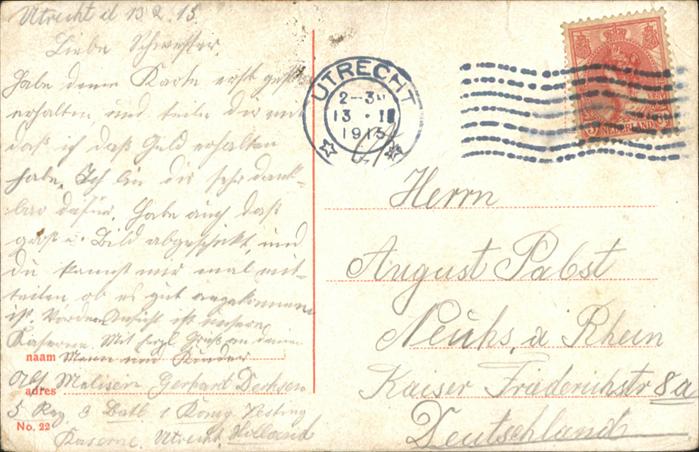 Utrecht d 13 2. 15.
Liebe Schwester.
Habe deine Karte erst gestern
erhalten, und teile dir mit
daß ich daß Geld erhalten
habe. Ich bin dir sehr dank-
bar dafür. Habe auch daß
Bild abgeschickt, und
du kannst mir mal mit-
teilen ob es gut angekommen
ist. Vordere Ansicht ist unsere
Kaserne. Mit Gruß an deinen
naam Mann und Kinder
adres Gerhard
5 Reg 3 Batl 1 Komp Vesting
No. 22 Kaserne. Utrecht. Holland
UTRECHT
2-3
13 · II
1915
NEDERLAND
Herrn
August Pabst
Neuhs. a Rhein
Kaiser Friederichstr 8a
Deutschland